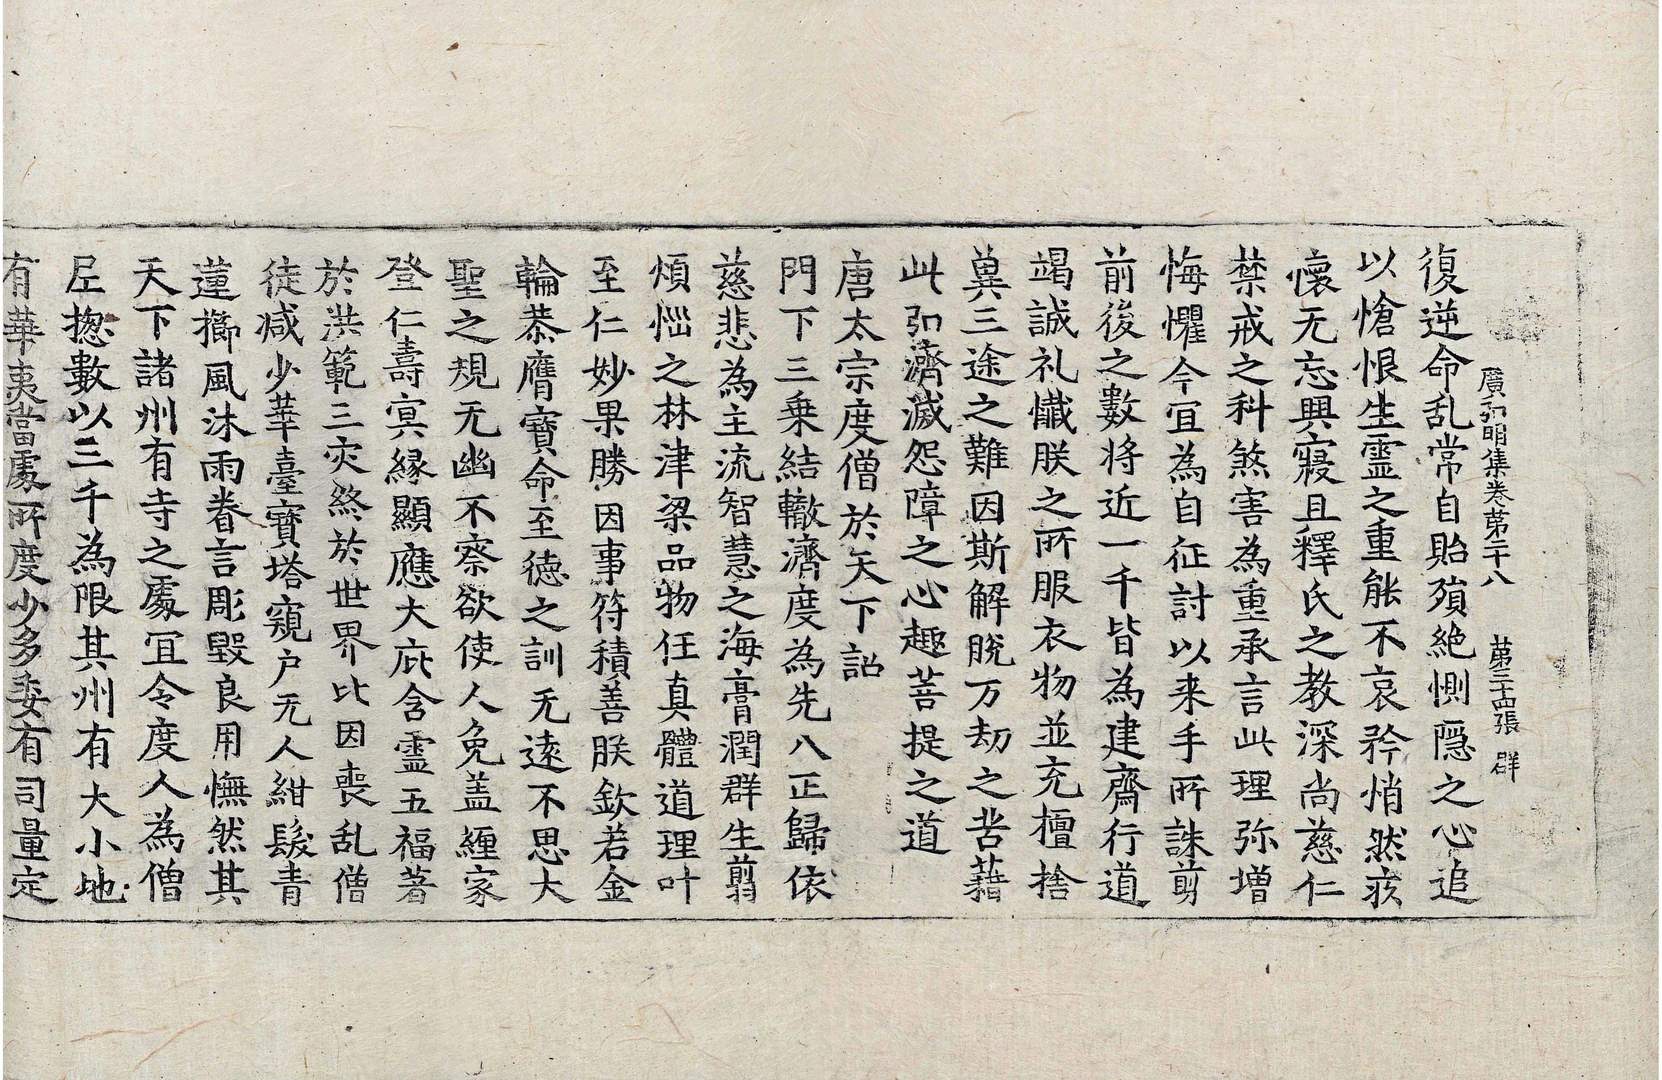 廣弘明集卷第二十八 第三十四張 群
復逆命乱常自貽殞絶惻隠之心追
以愴恨生霊之重能不哀矜悄然疚
懷无忘興寢且釋氏之教深尚慈仁
禁戒之科煞害為重承言此理弥增
悔懼今冝為自征討以来手所誅剪
前後之數将近一千皆為建齋行道
竭誠礼懺朕之所服衣物並充檀捨
兾三途之難因斯解脫万劫之苦藉
此弘濟滅怨障之心趣菩提之道
唐太宗度僧於天下詔
門下三乗結轍濟度為先八正歸依
慈悲為主流智慧之海膏潤群生翦
煩惱之林津梁品物任真體道理叶
至仁妙果勝因事符積善朕欽若金
輪恭膺寶命至德之訓无遠不思大
聖之規无幽不察欲使人免盖纏家
登仁壽冥縁顯應大庇含霊五福著
於洪範三灾終於世界比因喪乱僧
徒减少華臺寳塔窺户无人紺髮青
蓮櫛風沐雨眷言彫毀良用憮然其
天下諸州有寺之處冝令度人為僧
尼揔數以三千為限其州有大小地
有華夷當處所度少多委有司量定